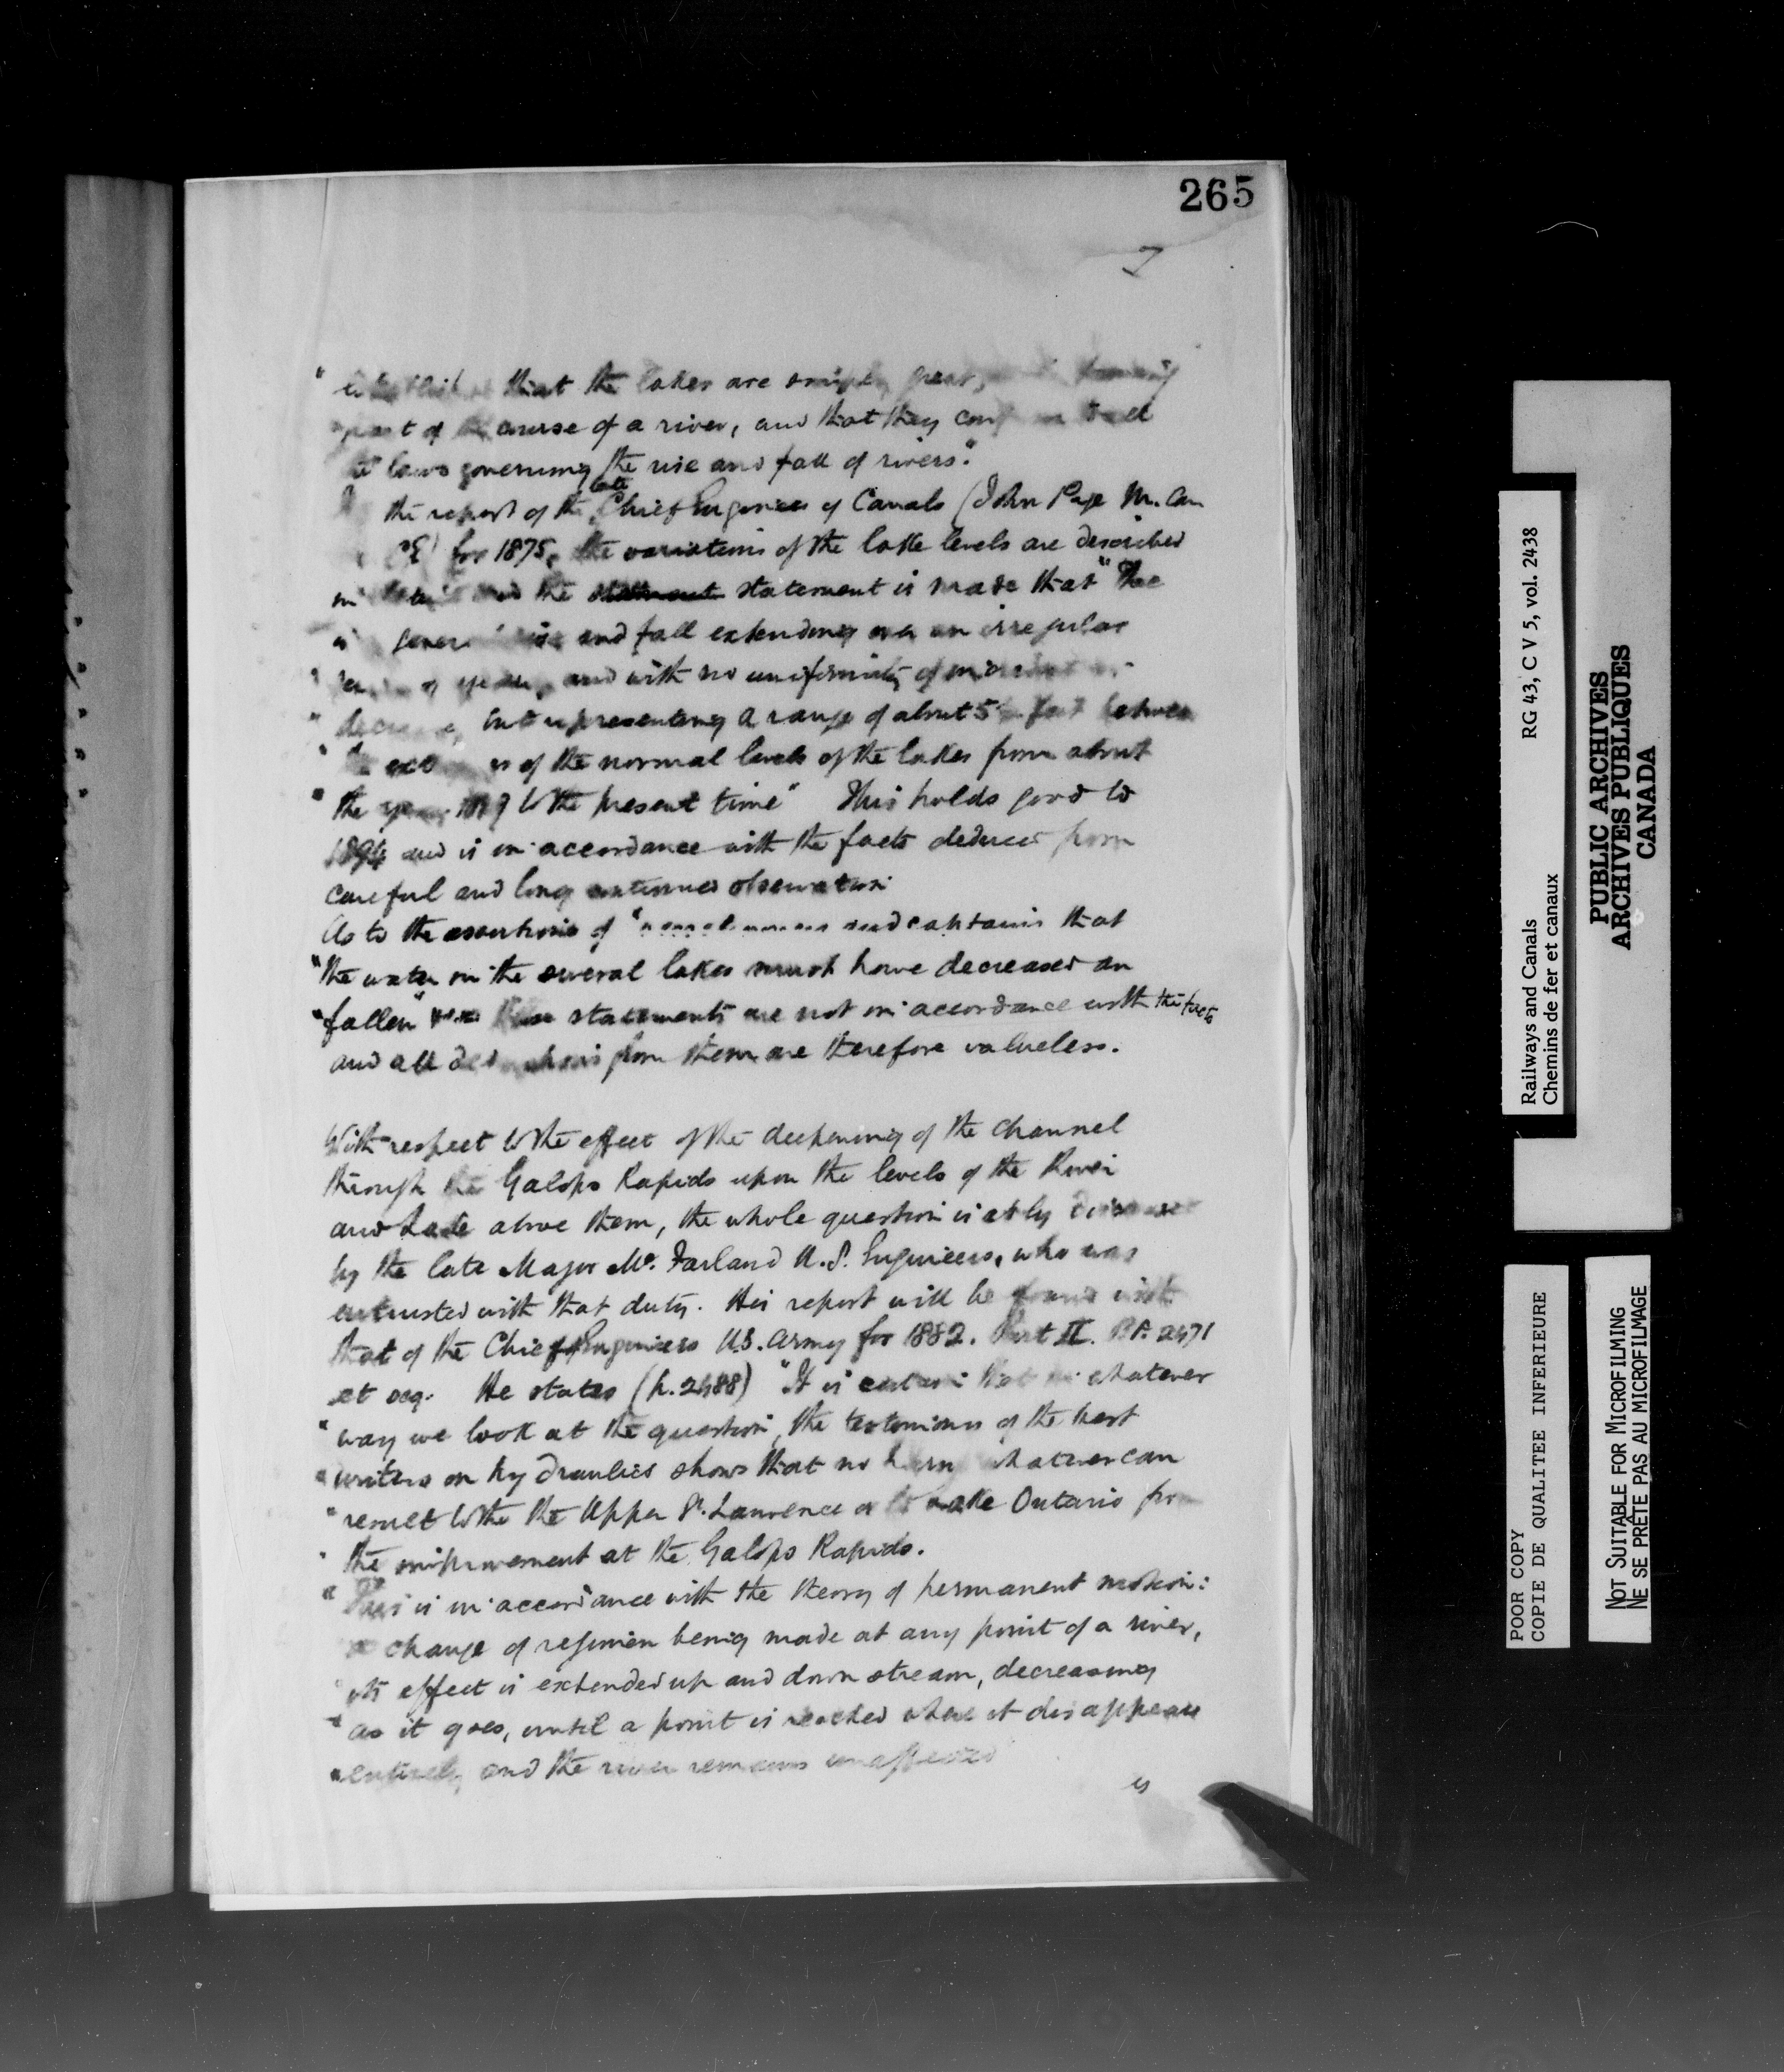 265
7
" that the lakes are simply great
part of the course of a river, and that they
laws governing the rise and fall of rivers."
the report of the late Chief Engineer of Canals (John Page M. Can
CE) for 1875, the variations of the lake levels are described
and the statement statement is made that "The
general rise and fall extending over an irregular
" of years, and with no uniformity of
" but representing a range of about 5 feet between
" of the normal levels of the lakes from about
" the year to the present time" This holds good to
1894 and is in accordance with the facts deduced from
careful and long continued observation
As to the assertions of " and captains that
"the water in the several lakes must have decreased an
"fallen" statements are not in accordance with the facts
and all from them are therefore valueless.
With respect to the effect of the deepening of the channel
through the Galops Rapids upon the levels of the River
and Lake above them, the whole question is ably
by the late Major Mc. Farland U.S. Engineers, who was
entrusted with that duty. His report will be found with
that of the Chief of Engineers U.S. Army for 1882. Part II. PP. 2471
et seq. He states (p. 2488) "It is certain that in whatever
" way we look at the question, the testimony of the best
" writers on hydraulics shows that no harm whatever can
" result to the the Upper St. Lawrence or to Lake Ontario from
" the improvement at the Galops Rapids.
" This is in accordance with the theory of permanent motion:
change of regimen being made at any point of a river,
" its effect is extended up and down stream, decreasing
" as it goes, until a point is reached where it disappears
" entirely and the river remains unaffected
Railways and Canals RG 43, C V 5, vol. 2438
Chemins de fer et canaux
PUBLIC ARCHIVES
ARCHIVES PUBLIQUES
CANADA
POOR COPY
COPIE DE QUALITEE INFERIEURE
NOT SUITABLE FOR MICROFILMING
NE SE PRÊTE PAS AU MICROFILMAGE